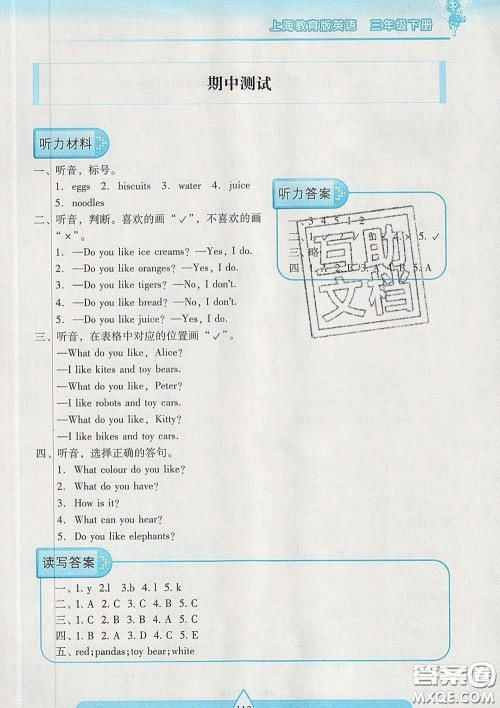 上海教育版英语 三年级下册
期中测试
听力材料
一、听音，标号。
1. eggs 2. biscuits 3. water 4. juice
5. noodles
二、听音，判断。喜欢的画“✓”，不喜欢的画
“×”。
1. —Do you like ice creams? —Yes, I do.
2. —Do you like oranges? —Yes, I do.
3. —Do you like tigers? —No, I don't.
4. —Do you like bread? —No, I don't.
5. —Do you like juice? —Yes, I do.
三、听音，在表格中对应的位置画“✓”。
—What do you like, Alice?
—I like kites and toy bears.
—What do you like, Peter?
—I like robots and toy cars.
—What do you like, Kitty?
—I like bikes and toy cars.
四、听音，选择正确的答句。
1. What colour do you like?
2. What do you have?
3. How is it?
4. What can you hear?
5. Do you like elephants?
听力答案
一、3 4 5 1 2
二、1. 5. ✓
三、略
四、1. A 2. B 3. A 4. B 5. A
互助
文档
读写答案
一、1. y 2.l 3.b 4.l 5.k
二、1. A 2. C 3. C 4. B 5. C
三、1. C 2. B 3. A 4. B 5. C
四、1. B 2. A 3. D 4. C 5. E
五、red;pandas;toy bear;white
答案圈
MXQE.COM